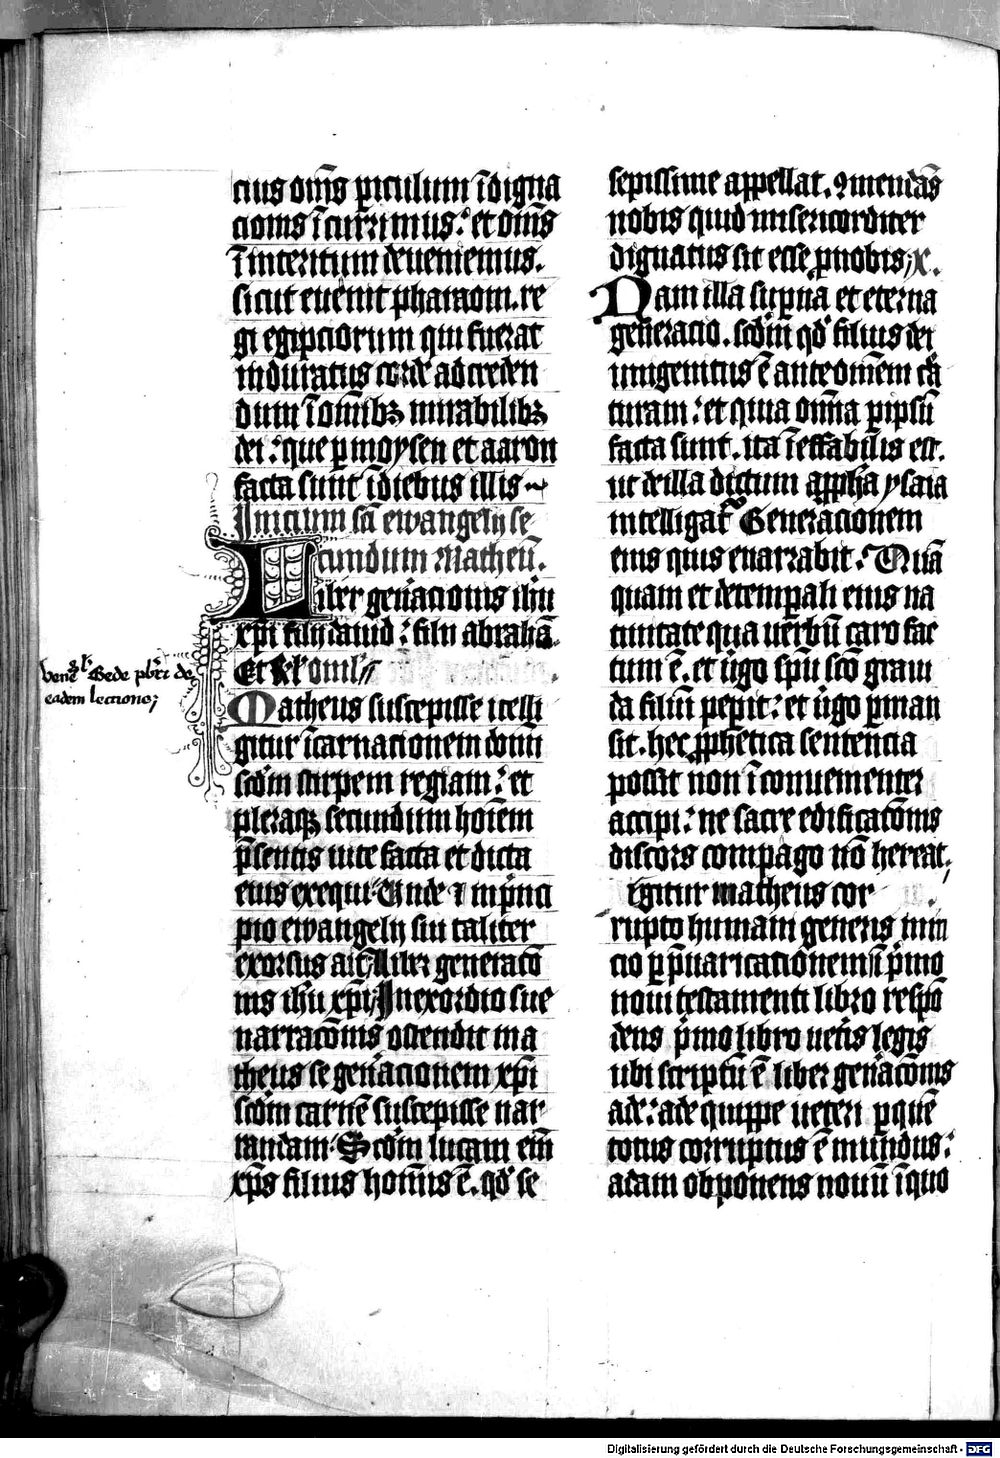 cius om̄s p̲iculum ī digna
cionis īcurrimus : et om̄s
ī interitum deueniemus .
sicut euenit pharaoni . re
gi egipciorum qui fuerat
induratus corde ad creden
dum ī om̄ibꝫ mirabilibꝫ
dei : que p̲ moysen et aaron
facta sunt ī diebus illis ~
Inicium sc̄i ewangelij se
cundum Matheū .
Liber gen̄acionis ihū
xp̄i filij dauid : filii abrahā .
Et Rl̓ . oml̓ //
ven̄e̓l̓ Bede p̄bt̓ri de
eadem lectione ;
Matheus suscepisse ītelli
gitur īcarnacionem domī
scdm̄ stirpem regiam : et
pleraqꝫ secundum hoīem
p̄sentis uite facta et dicta
eius exequi . Unde ⁊ in p̓nci
pio ewangelij sui taliter
exorsus ait . Liber generacō
nis ihū xp̄i . In exordio sue
narracōnis ostendit ma
theus se gen̄acionem xp̄i
scdm̄ carnē suscepisse nar
randam . Scdm̄ lucam em̄
xp̄s filius homīs ē . qd̓ se
sepissime appellat . ꝯmendās
nobis quid misericorditer
dignatus sit esse p̲ nobis ; x .
Nam illa sup̲na et eterna
gen̄eracio . scdm̄ qd̓ filius dei
unigenitus ē ante om̄em c̓a
turam : et quia om̄ia p̲ ip̄sū
facta sunt . ita īeffabilis est .
ut de illa dictum a p̲ph̄a ysaia
intelligat̓ . Generacionem
eius quis enarrabit : Quā
quam et de temp̲ali eius na
tiuitate qua uerbū caro fac
tum ē . et ùgo sp̄u scō graui
da filiū pep̲it : et ùgo p̲man
sit . hec p̲ph̄etica sentencia
possit non ī conuenienter
accipi : ne sacre edificacōnis
discors compago nō hereat .
igitur matheus cor
rupto humani generis inic
cio p̲ p̄uaricacionem ī p̓mo
noui testamenti libro respō
dens p̓mo libro uet̓is legis
ubi scriptū ē liber gen̄acōnis
ade : ade quippe ueteri p̲ quē
totus corruptus ē mundus :
adam obponens nouū ī quo
Digitalisierung gefördert durch die Deutsche Forschungsgemeinschaft - DFG